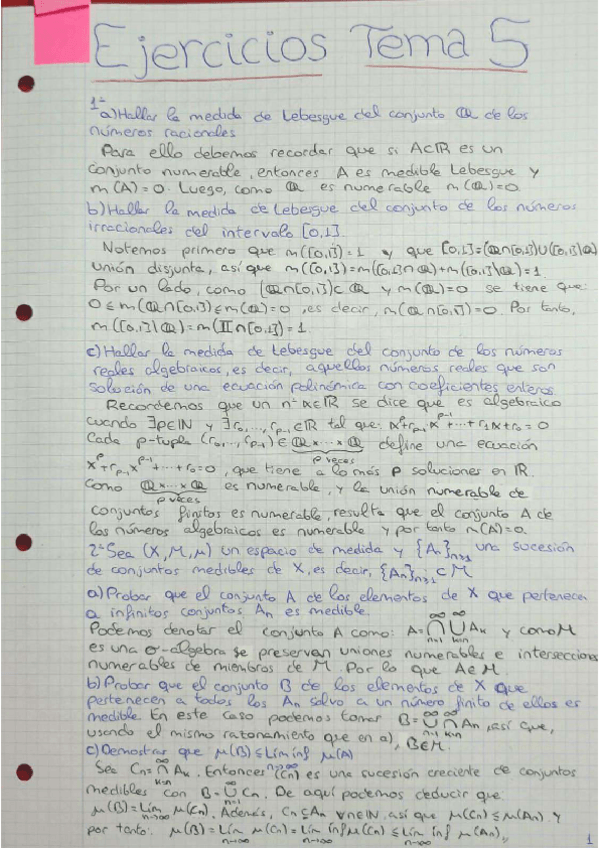 Ejercicios Tema 5
1º a) Hallar la medida de Lebesgue del conjunto ℚ de los
números racionales
Para ello debemos recordar que si A⊂ℝ es un
conjunto numerable, entonces A es medible Lebesgue y
m(A)=0. Luego, como ℚ es numerable m(ℚ)=0.
b) Hallar la medida de Lebesgue del conjunto de los números
irracionales del intervalo [0,1].
Notemos primero que m([0,1])=1 y que [0,1]=(ℚ∩[0,1])∪([0,1]\ℚ)
unión disjunta, así que m([0,1])=m([0,1]∩ℚ)+m([0,1]\ℚ)=1
Por un lado, como (ℚ∩[0,1])⊂ℚ y m(ℚ)=0 se tiene que:
0≤m(ℚ∩[0,1])≤m(ℚ)=0, es decir, m(ℚ∩[0,1])=0. Por tanto,
m([0,1]\ℚ)=m(𝕀∩[0,1])=1.
c) Hallar la medida de Lebesgue del conjunto de los números
reales algebraicos, es decir, aquellos números reales que son
solución de una ecuación polinómica con coeficientes enteros.
Recordemos que un nº α∈ℝ se dice que es algebraico
cuando ∃p∈ℕ y ∃r₀,...,rₚ₋₁∈ℝ tal que: αᵖ+rₚ₋₁αᵖ⁻¹+...+r₁α+r₀=0
Cada p-tupla (r₀,...,rₚ₋₁)∈ℚ×...×ℚ define una ecuación
p veces
xᵖ+rₚ₋₁xᵖ⁻¹+...+r₀=0, que tiene a lo más p soluciones en ℝ.
Como ℚ×...×ℚ es numerable, y la unión numerable de
p veces
conjuntos finitos es numerable, resulta que el conjunto A de
los números algebraicos es numerable y por tanto m(A)=0.
2º Sea (X,M,μ) un espacio de medida y {Aₙ}ₙ≥₁ una sucesión
de conjuntos medibles de X, es decir, {Aₙ}ₙ≥₁⊂M
a) Probar que el conjunto A de los elementos de X que pertenecen
a infinitos conjuntos Aₙ es medible.
Podemos denotar el conjunto A como: A=⋂ₙ₌₁^∞ ⋃ₖ₌ₙ^∞ Aₖ y como M
es una σ-algebra se preservan uniones numerables e intersecciones
numerables de miembros de M. Por lo que A∈M.
b) Probar que el conjunto B de los elementos de X que
pertenecen a todos los Aₙ salvo a un número finito de ellos es
medible. En este caso podemos tomar B=⋃ₙ₌₁^∞ ⋂ₖ₌ₙ^∞ Aₙ, así que,
usando el mismo razonamiento que en a), B∈M.
c) Demostrar que μ(B)≤Lím inf μ(A)
n→∞
Sea Cₙ=⋂ₖ₌ₙ^∞ Aₖ. Entonces (Cₙ) es una sucesión creciente de conjuntos
medibles con B=⋃ₙ₌₁^∞ Cₙ. De aquí podemos deducir que:
μ(B)=Lím μ(Cₙ). Además, Cₙ⊆Aₙ ∀n∈ℕ, así que μ(Cₙ)≤μ(Aₙ). Y
n→∞
por tanto: μ(B)=Lím μ(Cₙ)=Lím inf μ(Cₙ)≤Lím inf μ(Aₙ),,
n→∞ n→∞ n→∞
1